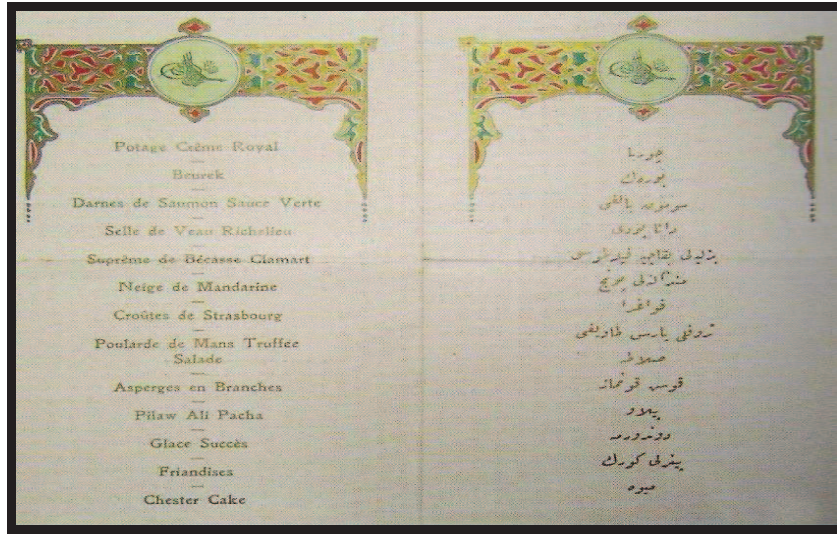 Potage Crème Royal
Beurek
Darnes de Saumon Sauce Verte
Selle de Veau Richelieu
Suprême de Bécasse Clamart
Neige de Mandarine
Croûtes de Strasbourg
Poularde de Mans Truffée
Salade
Asperges en Branches
Pilaw Ali Pacha
Glace Succès
Friandises
Chester Cake
چوربا
بورەك
سومون بالغی
دانا
پونچ
قواغرا
تروفلی
صلاطه
قوش قونماز
پیلاو
دوندورمه
میوه